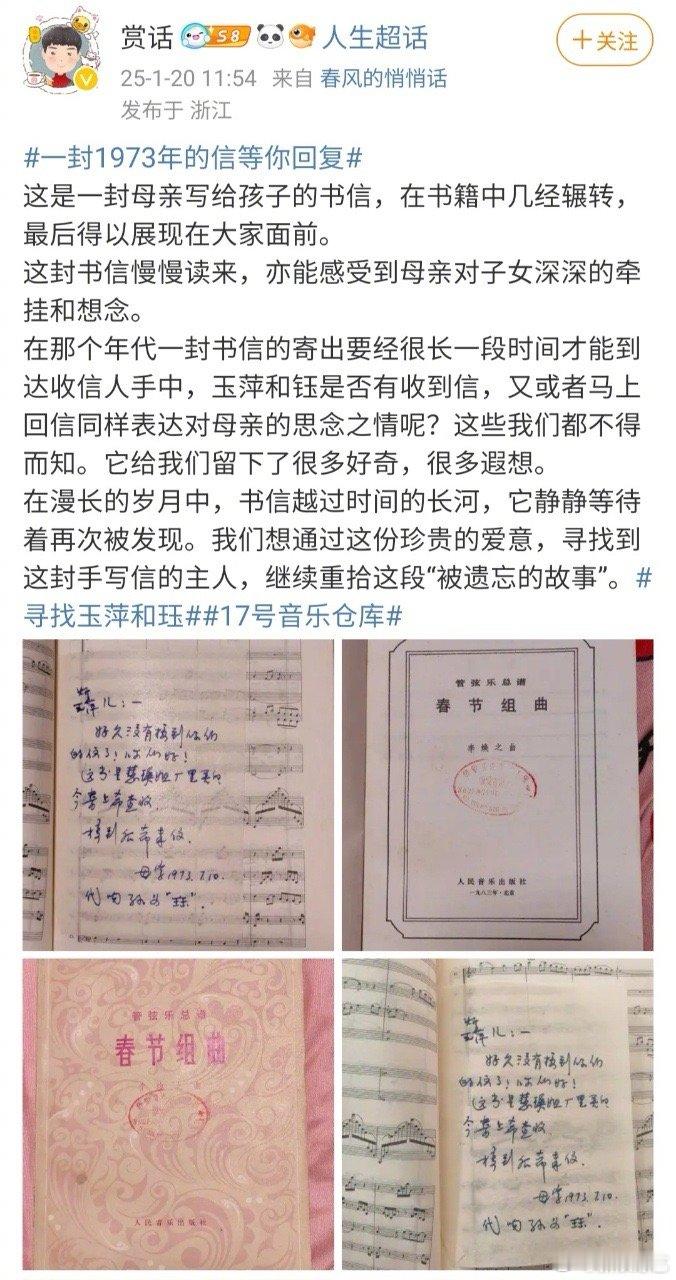 赏话 S8 人生超话
+关注
25-1-20 11:54 来自 春风的悄悄话
发布于 浙江
#一封1973年的信等你回复#
这是一封母亲写给孩子的书信，在书籍中几经辗转，
最后得以展现在大家面前。
这封书信慢慢读来，亦能感受到母亲对子女深深的牵
挂和想念。
在那个年代一封书信的寄出要经很长一段时间才能到
达收信人手中，玉萍和钰是否有收到信，又或者马上
回信同样表达对母亲的思念之情呢？这些我们都不得
而知。它给我们留下了很多好奇，很多遐想。
在漫长的岁月中，书信越过时间的长河，它静静等待
着再次被发现。我们想通过这份珍贵的爱意，寻找到
这封手写信的主人，继续重拾这段“被遗忘的故事”。#
寻找玉萍和珏##17号音乐仓库#
儿：—
好久没有接到你们
的信了！你们好！
这书是慧瑛姐厂里买的
今寄上希查收
接到后希来信.
母字1973.7.10.
代向孙女“珏”.
管弦乐总谱
春节组曲
李焕之曲
人民音乐出版社
一九八三年·北京
管弦乐总谱
春节组曲
李焕之曲
人民音乐出版社
儿：—
好久没有接到你们
的信了！你们好！
这书是慧瑛姐厂里买的
今寄上希查收
接到后希来信.
母字1973.7.10.
代向孙女“珏”.